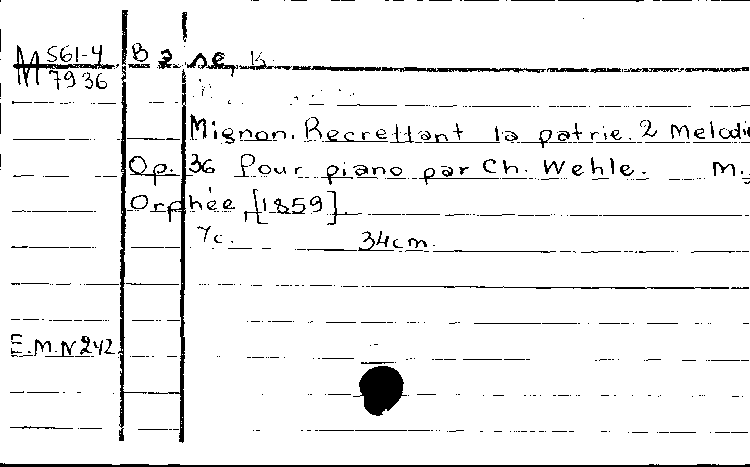 M 561-4
7936
Mignon. Recrettant la patrie. 2 Melodi
Op. 36 Pour piano par Ch. Wehle. M.,
Orphée, [1859].
7c. 34cm.
E.M.N242